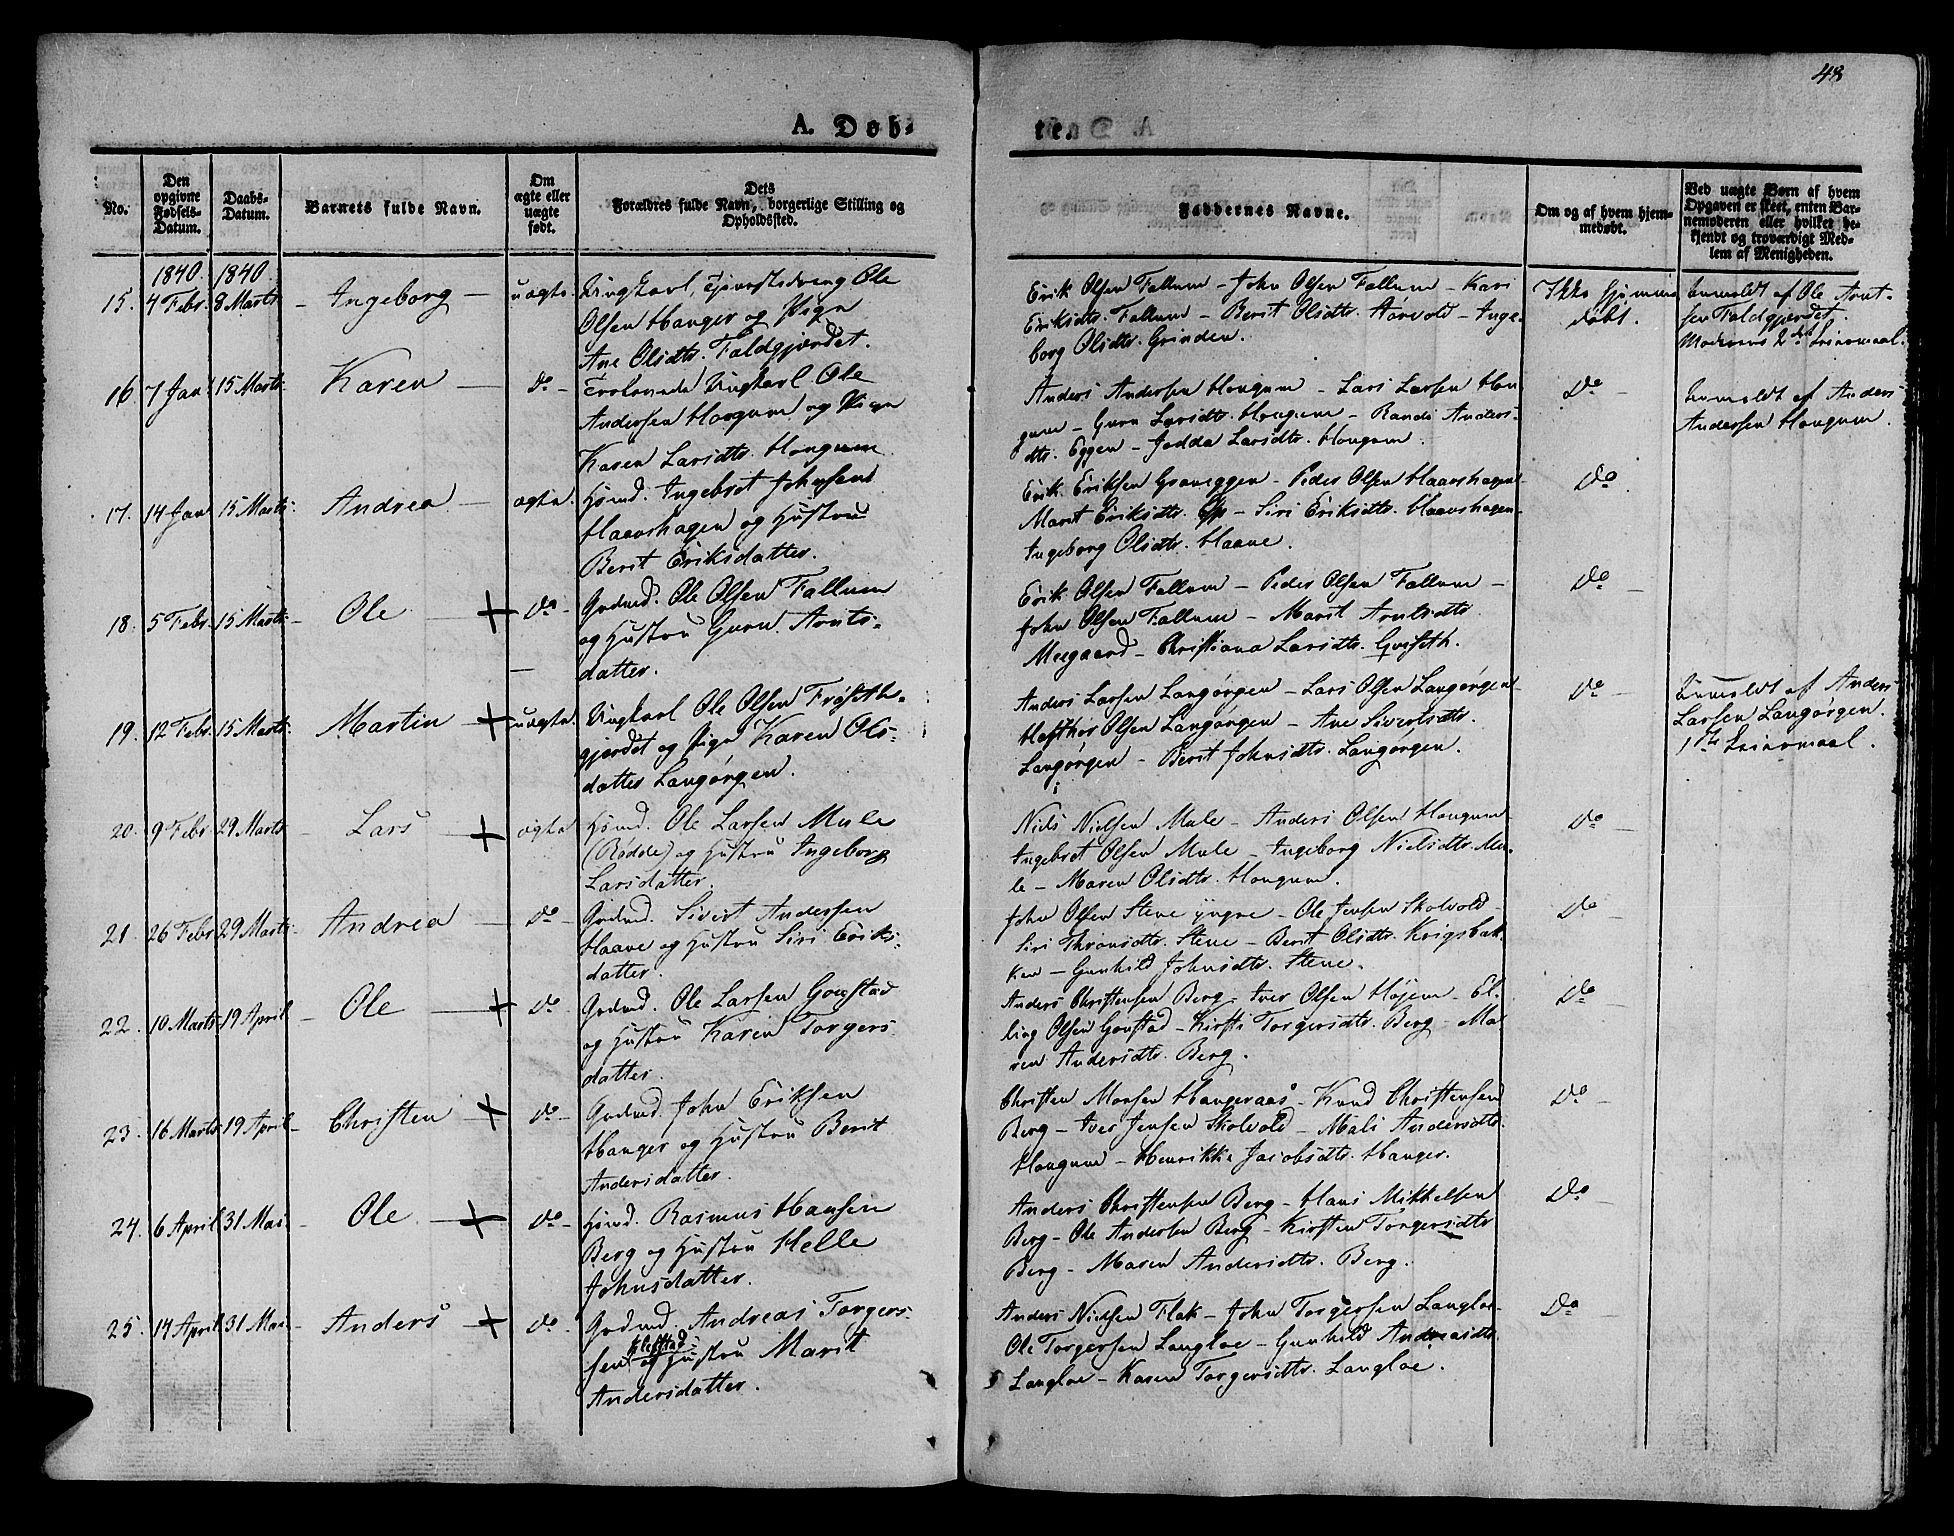 48
A. Døb-
te.
No.
Den opgivne Fødsels-Datum.
Daabs-Datum.
Barnets fulde Navn.
Om ægte eller uægte født.
Dets Forældres fulde Navn, borgerlige Stilling og Opholdssted.
Faddernes Navne.
Om og af hvem hjem-medøbt.
Ved uægte Børn af hvem Opgaven er skeet, enten Bar-nemoderen eller hvilket be-kjendt og troværdigt Med-lem af Menigheden.
1840. 1840.
15. 4 Febr. 8 Marts - Ingeborg - uægte. Ungkarl, Tjenestedreng Ole
Olsen Hanger og Pige
Ane Olsdtr. Foldgjærdet.
Erik Olsen Fallum - John Olsen Fallum - Kari
Eriksdtr. Fallum - Berit Olsdtr. Aarvold - Inge-
borg Olsdtr. Grinden.
Ikke hjemme
døbt.
Anmeldt af Ole Arnt-
sen Foldgjærdet.
Moderens 2det Leiermaal.
16. 7 Jan. 15 Marts. Karen - do - Trolovede Ungkarl Ole
Andersen Hougum og Pige
Karen Larsdtr. Hougum
Anders Andersen Hougum - Lars Larsen Hou-
gum - Guru Larsdtr. Hougum - Randi Anders-
dtr. Eggen - Jodda Larsdtr. Hougum.
Do -
Anmeldt af Anders
Andersen Hougum.
17. 14 Jan 15 Marts. Andrea - ægte. Hsmd. Ingebret Johnsen
Haavshagen og Hustru
Berit Eriksdatter.
Erik Eriksen Graneggen - Peder Olsen Haavshagen
Marit Eriksdtr. - Siri Eriksdtr. Haavshagen
Ingeborg Olsdtr. Haave.
Do
18. 5 Febr. 15 Marts - Ole + do - Grdmd. Ole Olsen Fallum
og Hustru Guru Arnts-
datter.
Erik Olsen Fallum - Peder Olsen Fallum -
John Olsen Fallum - Marit Arntsdtr.
Meegaard - Christiana Larsdtr. Gvaseth.
Do -
19. 12 Febr. 15 Marts. Martin + uægte. Ungkarl Ole Olsen Frøseth-
gjerdet og Pige Karen Ols-
datter Langørgen.
Anders Larsen Langørgen - Lars Olsen Langørgen
Halfther Olsen Langørgen - Ane Sivertsdtr.
Langørgen - Berit Johnsdtr. Langørgen.
Do -
Anmeldt af Anders
Larsen Langørgen.
1ste Leiermaal.
20. 9 Febr. 29 Marts - Lars + ægte Hsmd. Ole Larsen Mule
(Rødde) og Hustru Ingeborg
Larsdatter.
Niels Nielsen Mule - Anders Olsen Hougum
Ingebret Olsen Mule - Ingeborg Nielsdtr. Mu-
le - Maren Olsdtr. Hougum.
Do -
21. 26 Febr 29 Marts. Andrea - do - Grdmd. Sivert Andersen
Haave og Hustru Siri Eriks-
datter.
John Olsen Stene yngre - Ole Jensen Skolvold -
Siri Thronsdtr. Stene - Berit Olsdtr. Krigsbak-
ken - Gunhild Johnsdtr. Stene.
Do -
22. 10 Marts 19 April - Ole + do Grdmd. Ole Larsen Goustad
og Hustru Karen Torgers-
datter.
Anders Christensen Berg - Iver Olsen Høiem - El-
ling Olsen Goustad - Kirsti Torgersdtr. Berg - Ma-
ren Andersdtr. Berg.
Do
23. 16 Marts 19 April - Christen + do - Grdmd. John Eriksen
Hanger og Hustru Berit
Andersdatter.
Christen Monsen Hangeraas - Knud Christensen
Berg - Iver Jensen Skolvold - Mali Andersdtr.
Hougum - Henrikke Jacobsdtr. Hanger.
Do -
24. 6 April 31 Mai - Ole + do - Hsmd. Rasmus Hansen
Berg og Hustru Helle
Johnsdatter.
Anders Christensen Berg - Hans Mikkelsen
Berg - Ole Andersen Berg - Kirsten Torgersdtr
Berg - Maren Andersdtr. Berg.
Do -
25. 14 April 31 Mai - Anders + do. Grdmd. Andreas Torgers-
sen Klefstad og Hustru Marit
Andersdatter.
Anders Nielsen Flak - John Torgersen Langloe
Ole Torgersen Langloe - Gunhild Andreasdtr.
Langloe - Karen Torgersdtr. Langloe.
Do